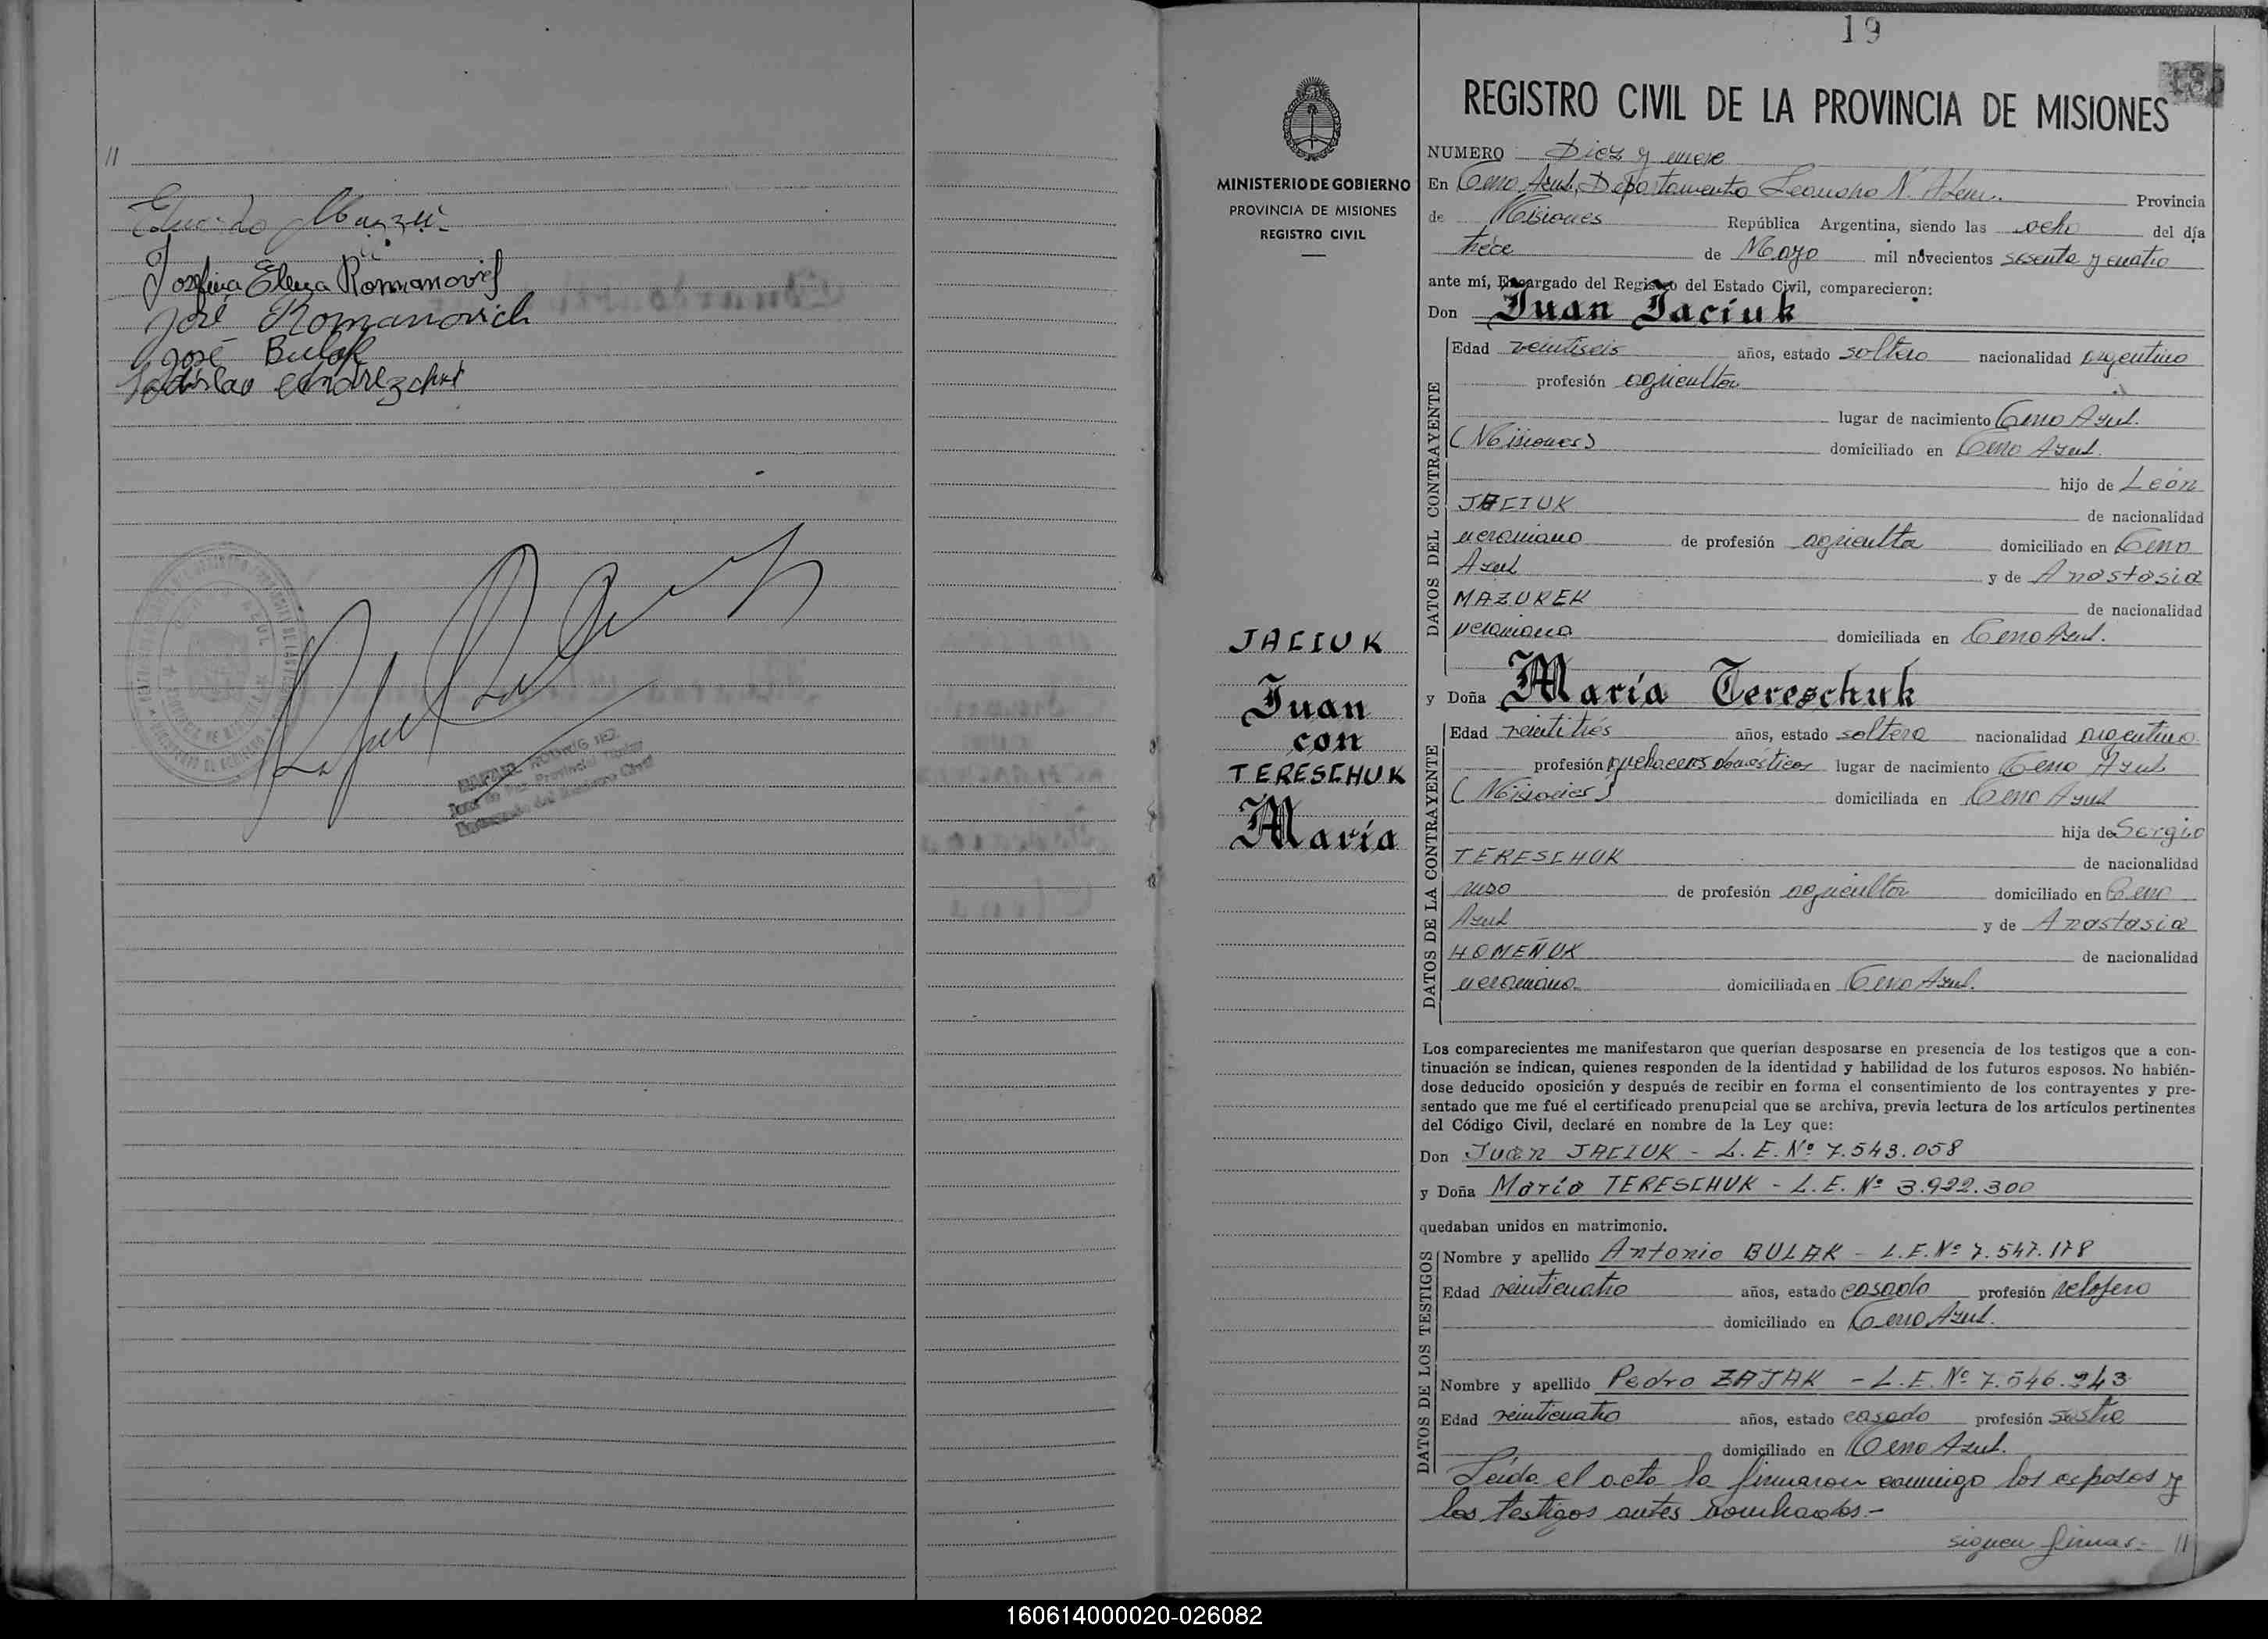 //
Eduardo
Josefina Elena Romanovich
José Romanovich
José Bulak
Ladislao
RAFAEL RODRIGUEZ
Juez de Paz Provincial Titular
Encargado del Registro Civil
MINISTERIO DE GOBIERNO
PROVINCIA DE MISIONES
REGISTRO CIVIL
JACIUK
Juan
con
TERESCHUK
María
19
185
REGISTRO CIVIL DE LA PROVINCIA DE MISIONES
NUMERO Diez y nueve
En Cerro Azul, Departamento Leandro N. Alem. Provincia
de Misiones República Argentina, siendo las ocho del día
trece de Mayo mil novecientos sesenta y cuatro
ante mí, Encargado del Registro del Estado Civil, comparecieron:
Don Juan Jaciuk
DATOS DEL CONTRAYENTE
Edad veintiseis años, estado soltero nacionalidad argentino
profesión agricultor
lugar de nacimiento Cerro Azul.
(Misiones) domiciliado en Cerro Azul.
hijo de León
JACIUK de nacionalidad
ucraniano de profesión agricultor domiciliado en Cerro
Azul y de Anastasia
MAZUREK de nacionalidad
ucraniana domiciliada en Cerro Azul.
y Doña María Tereschuk
DATOS DE LA CONTRAYENTE
Edad veintitrés años, estado soltera nacionalidad argentina
profesión quehaceres domésticos lugar de nacimiento Cerro Azul
(Misiones) domiciliada en Cerro Azul
hija de Sergio
TERESCHUK de nacionalidad
ruso de profesión agricultor domiciliado en Cerro
Azul y de Anastasia
HOMEÑUK de nacionalidad
ucraniana domiciliada en Cerro Azul.
Los comparecientes me manifestaron que querían desposarse en presencia de los testigos que a con-
tinuación se indican, quienes responden de la identidad y habilidad de los futuros esposos. No habién-
dose deducido oposición y después de recibir en forma el consentimiento de los contrayentes y pre-
sentado que me fué el certificado prenupcial que se archiva, previa lectura de los artículos pertinentes
del Código Civil, declaré en nombre de la Ley que:
Don Juan JACIUK - L.E. Nº 7.543.058
y Doña María TERESCHUK - L.E. Nº 3.922.300
quedaban unidos en matrimonio.
DATOS DE LOS TESTIGOS
Nombre y apellido Antonio BULAK - L.E. Nº 7.547.178
Edad veinticuatro años, estado casado profesión relojero
domiciliado en Cerro Azul.
Nombre y apellido Pedro ZAJAK - L.E. Nº 7.546.943
Edad veinticuatro años, estado casado profesión sastre
domiciliado en Cerro Azul.
Leída el acta la firmaron conmigo los esposos y
los testigos antes nombrados.-
siguen firmas- //
160614000020-026082